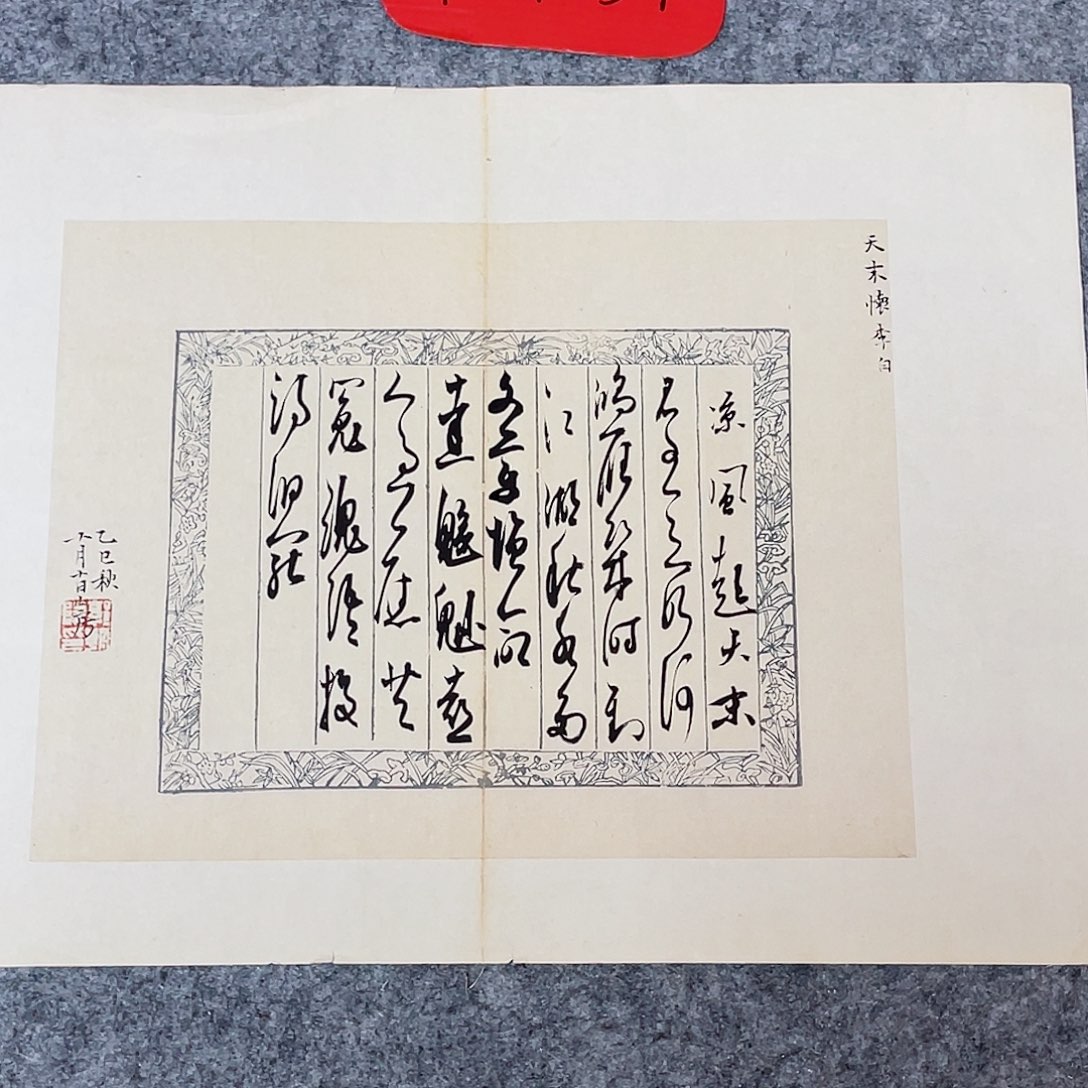 天末懷李白
凉風起天末
君子意如何
鴻雁幾時到
江湖秋水多
文章憎命
達魑魅喜
人過應共
冤魂語投
詩汨羅
乙巳秋